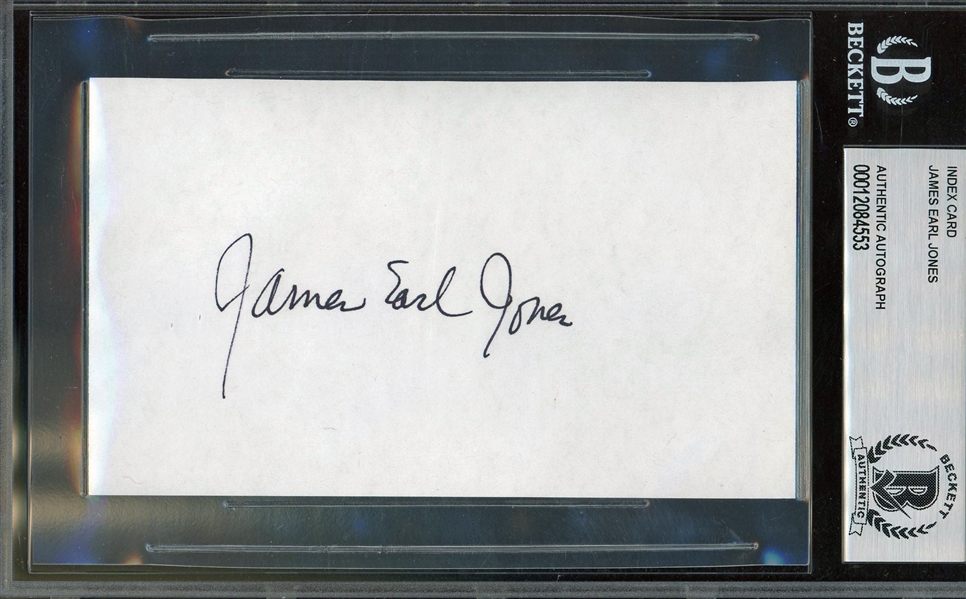 James Earl Jones
BECKETT®
B
INDEX CARD
JAMES EARL JONES
AUTHENTIC AUTOGRAPH
00012084553
BECKETT
B
AUTHENTIC